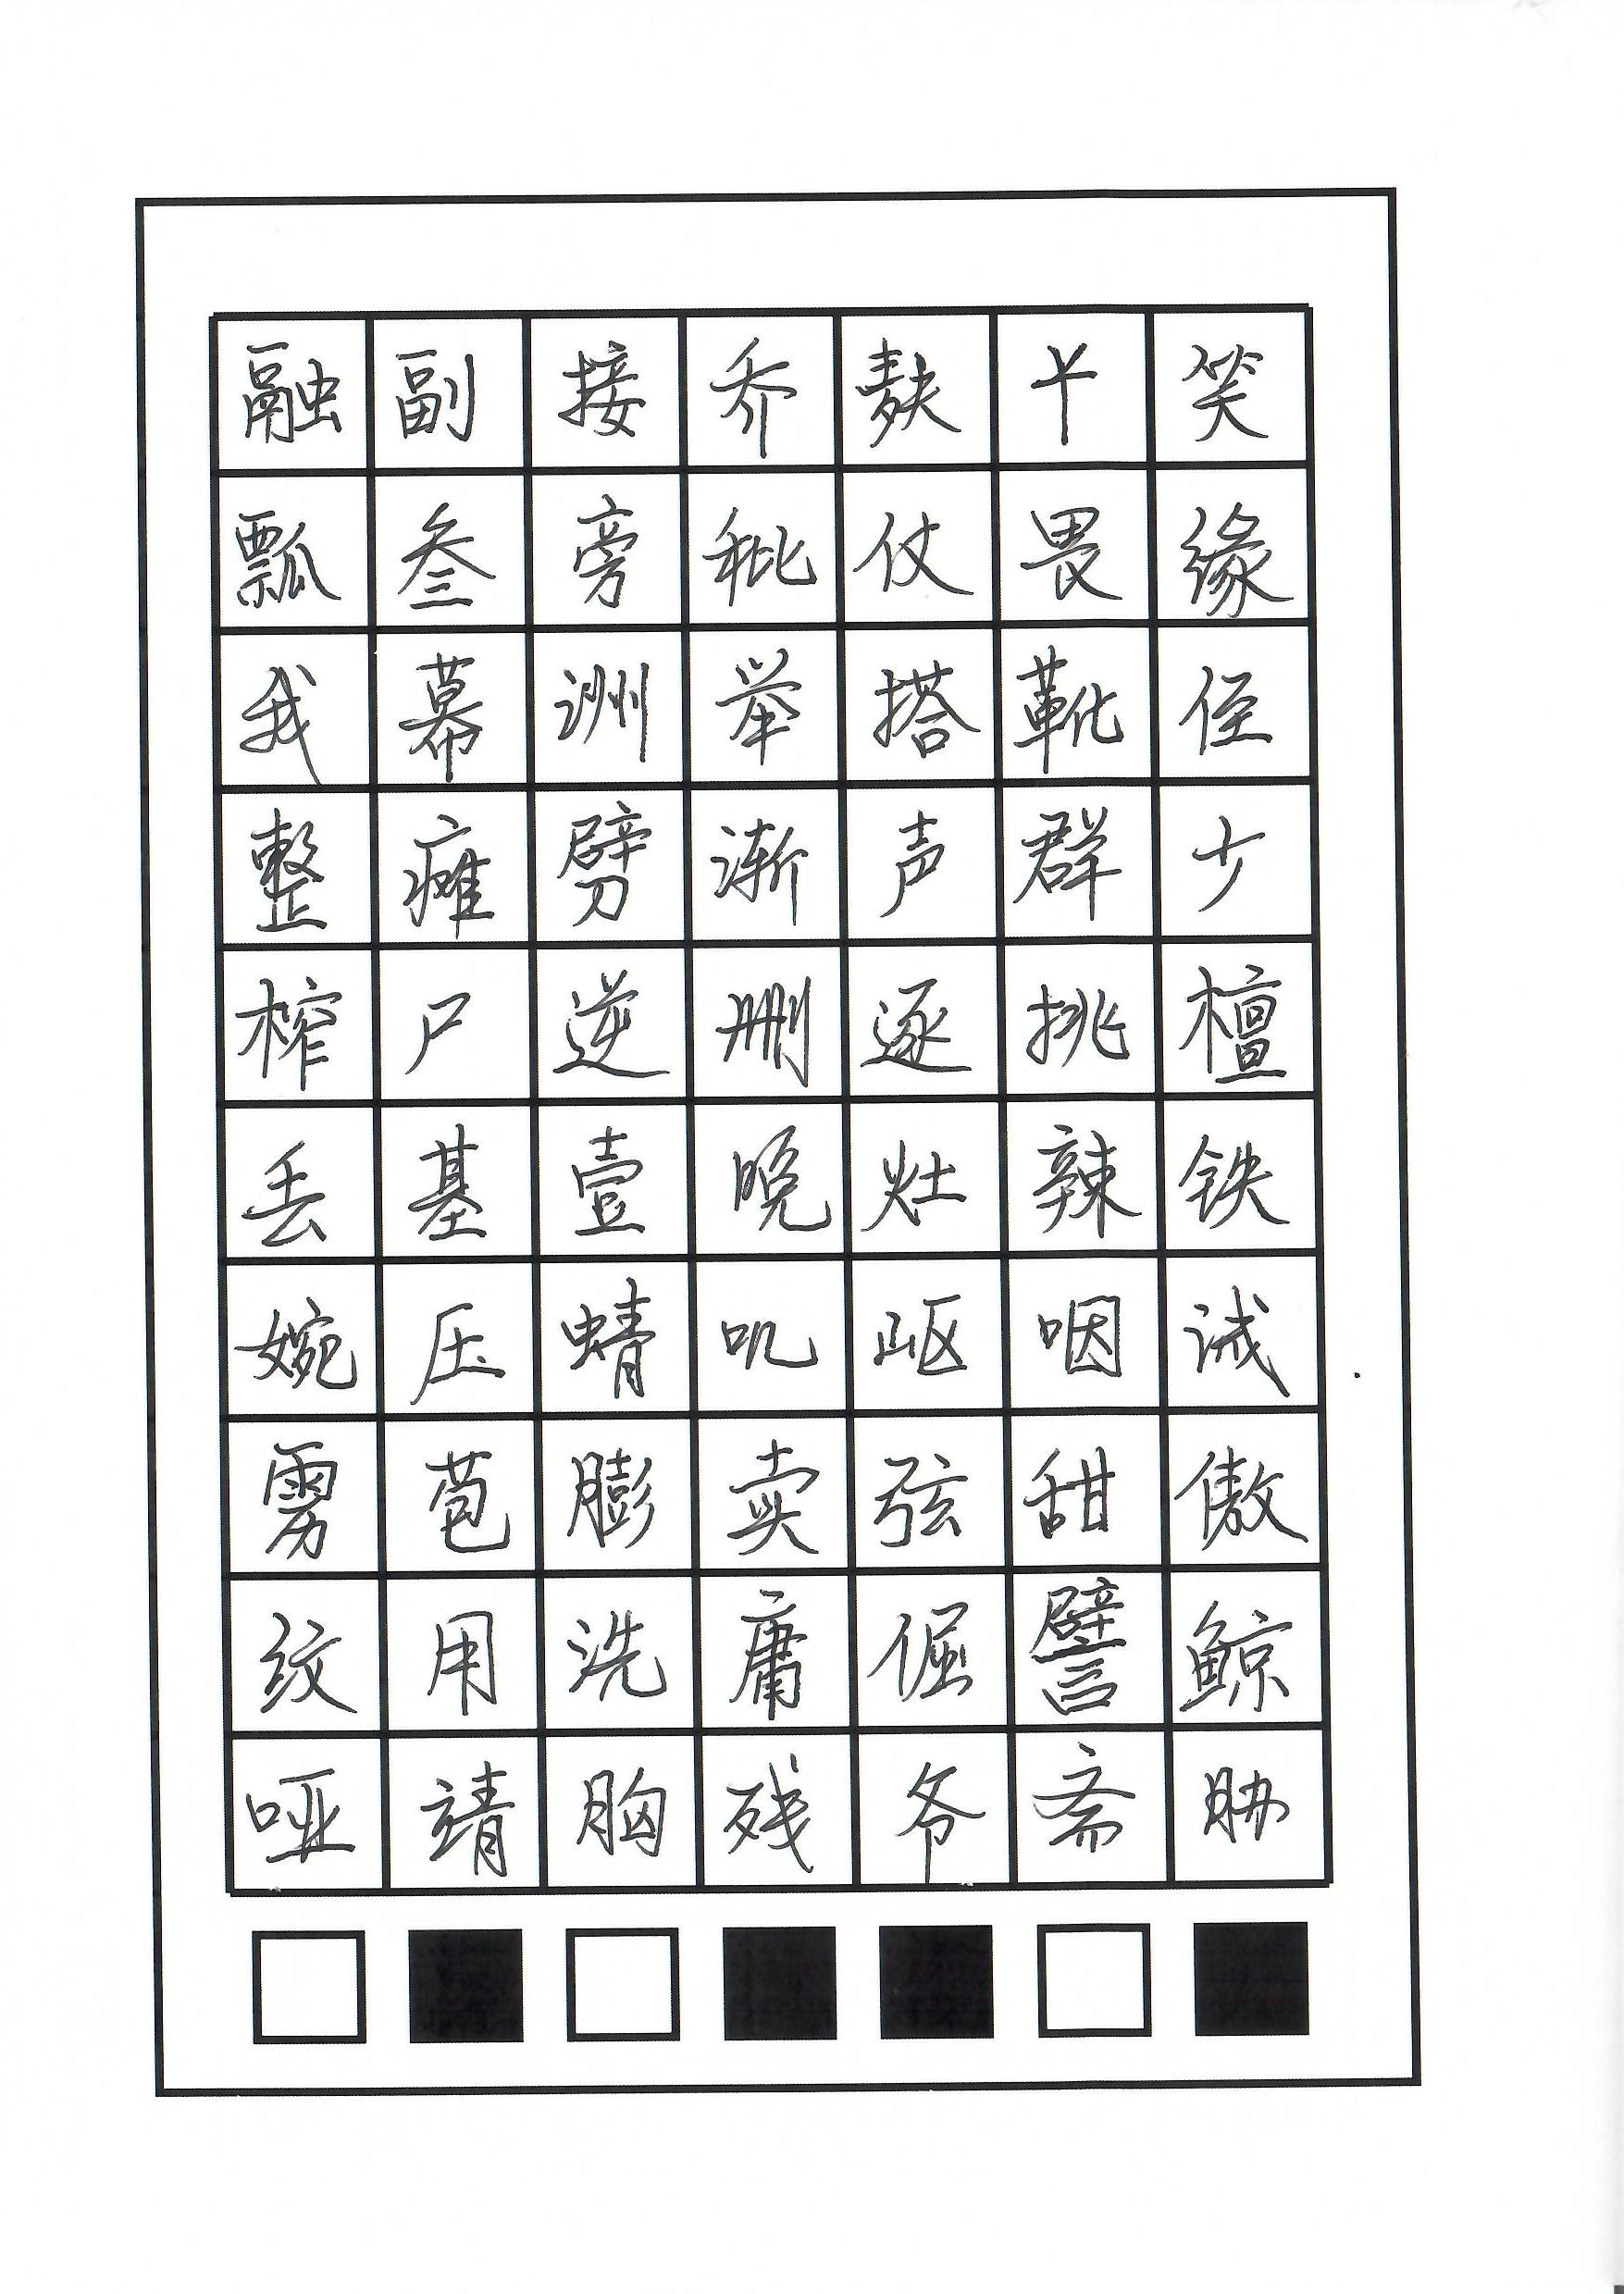 融副接乔麸笑
瓢叁旁秕仗畏缘
我幕洲举搭靴侄
整瘫劈渐声群
榨逆删逐挑檀
丢基壹晚灶辣铁
婉压蜻叽岖咽诫
苞膨卖弦甜傲
纹用洗庸倔譬鲸
哑靖胸残爷斋胁